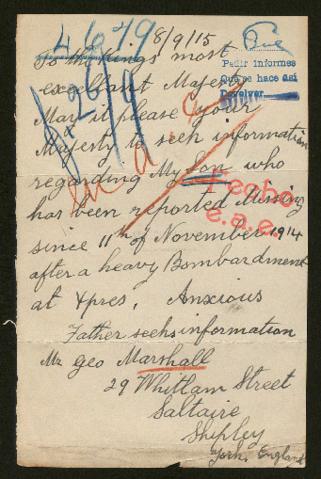 4679
8/9/15
Pedir informes
Que se hace así
Devolver
To the Kings most
excellant Majesty
May it please your
Majesty to seek information
regarding My Son who
has been reported Missing
Hecho
e.a.e.
since 11th of November 1914
after a heavy Bombardment
at Ypres, Anxious
Father seeks information
Mr geo Marshall
29 Whitlam Street
Saltaire
Shipley
York. England